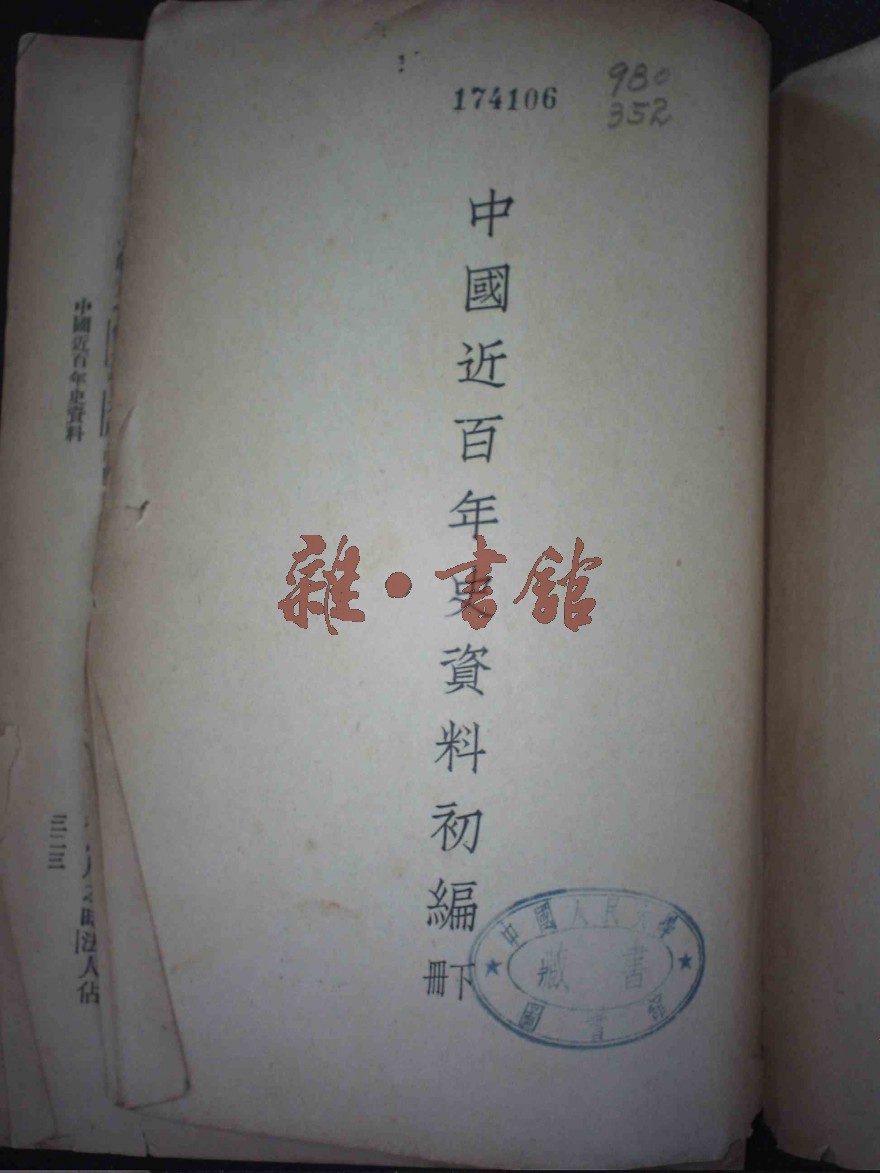 174106
980
352
中國近百年史資料初編
下冊
雜·書館
中國人民大學
藏書
圖書館
中國近百年史資料
三二三
法人佔